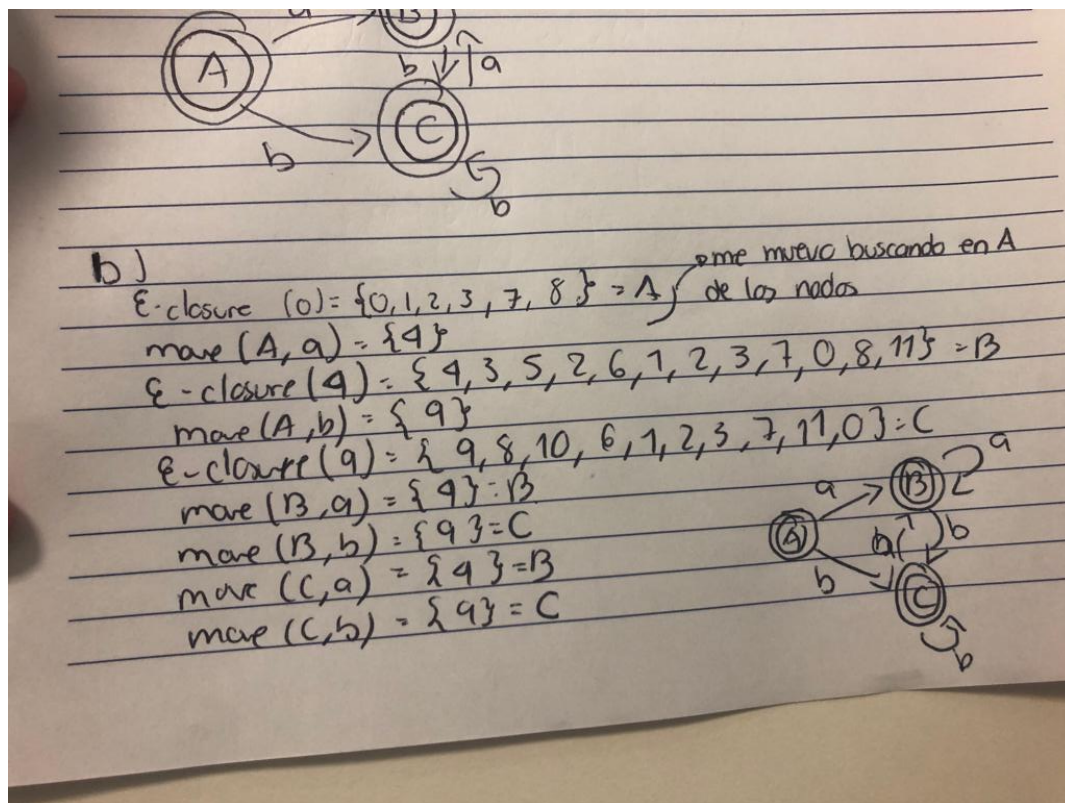 a
B
A
b a
C
b
b
b)
ε-closure (0) = {0,1,2,3,7,8} = A
me muevo buscando en A
de los nodos
move (A,a) = {4}
ε-closure (4) = {4,3,5,2,6,1,2,3,7,0,8,11} = B
move (A,b) = {9}
ε-closure (9) = {9,8,10,6,1,2,3,7,11,0} = C
move (B,a) = {4} = B
move (B,b) = {9} = C
move (C,a) = {4} = B
move (C,b) = {9} = C
a
a B
A
b
b
C
b